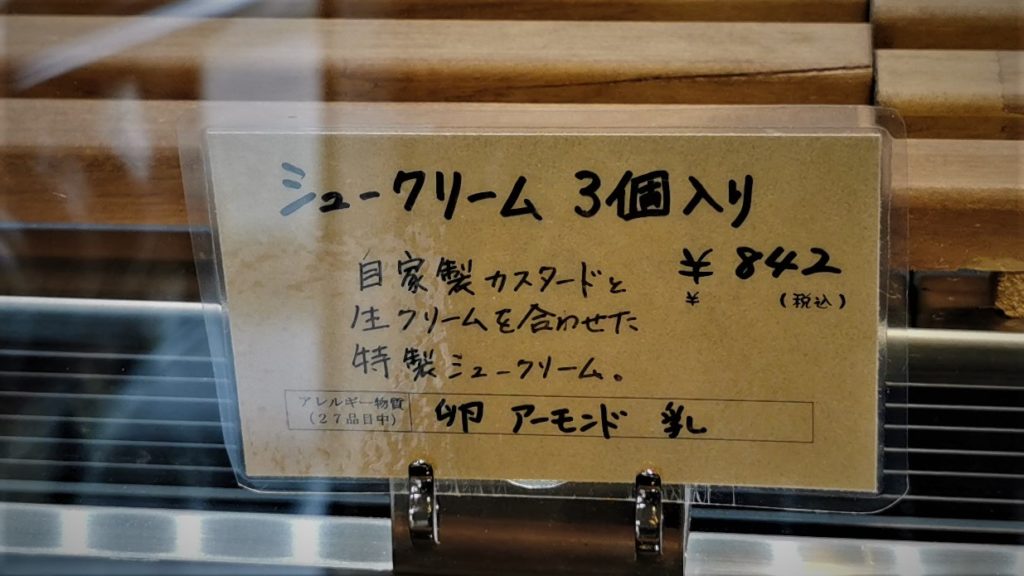 シュークリーム 3個入り
自家製カスタードと
生クリームを合わせた
特製シュークリーム。
¥842
¥ (税込)
アレルギー物質
(27品目中)
卵 アーモンド 乳